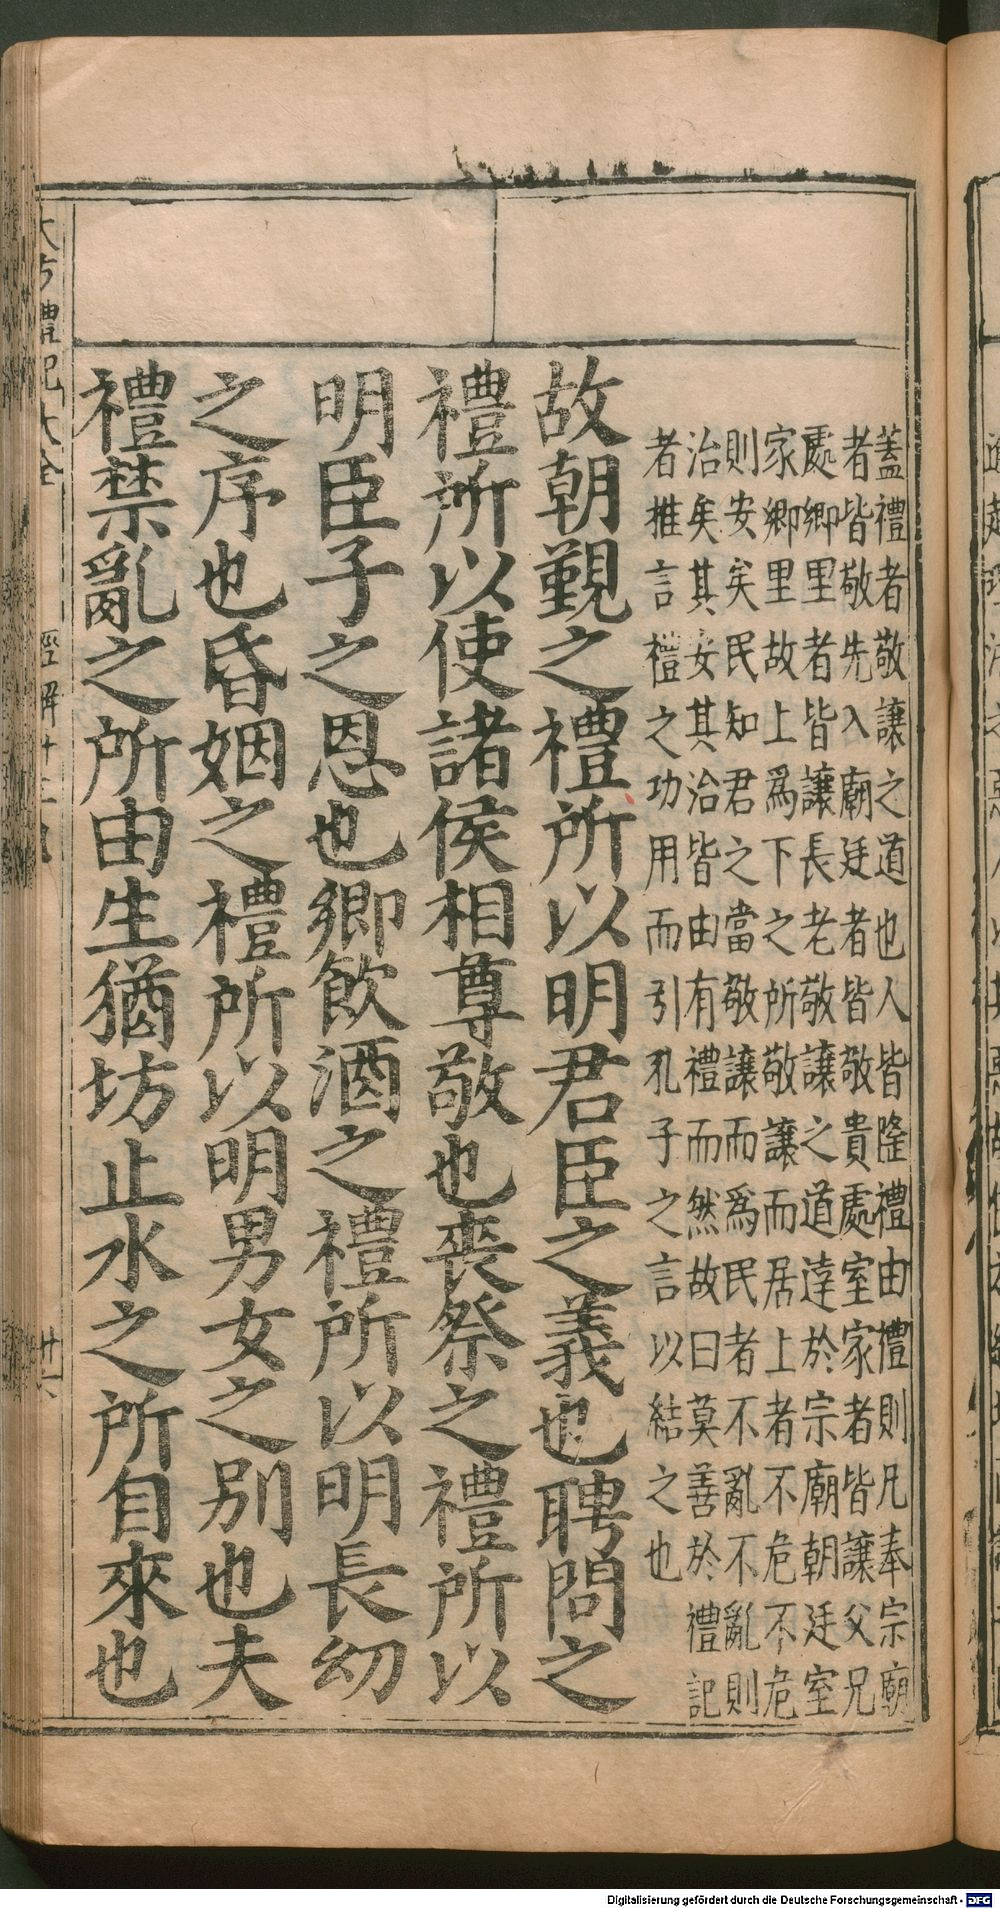 蓋禮者敬讓之道也人皆隆禮由禮則凡奉宗廟
者皆敬先入廟廷者皆敬貴處室家者皆讓父兄
處鄉里者皆讓長老敬讓之道達於宗廟朝廷室
家鄉里故上爲下之所敬讓而居上者不危不危
則安矣民知君之當敬讓而爲民者不亂不亂則
治矣其安其治皆由有禮而然故曰莫善於禮記
者推言禮之功用而引孔子之言以結之也
故朝覲之禮所以明君臣之義也聘問之
禮所以使諸侯相尊敬也喪祭之禮所以
明臣子之恩也鄉飲酒之禮所以明長幼
之序也昏姻之禮所以明男女之別也夫
禮禁亂之所由生猶坊止水之所自來也
禮記大全
經解
廿六
Digitalisierung gefördert durch die Deutsche Forschungsgemeinschaft - DFG